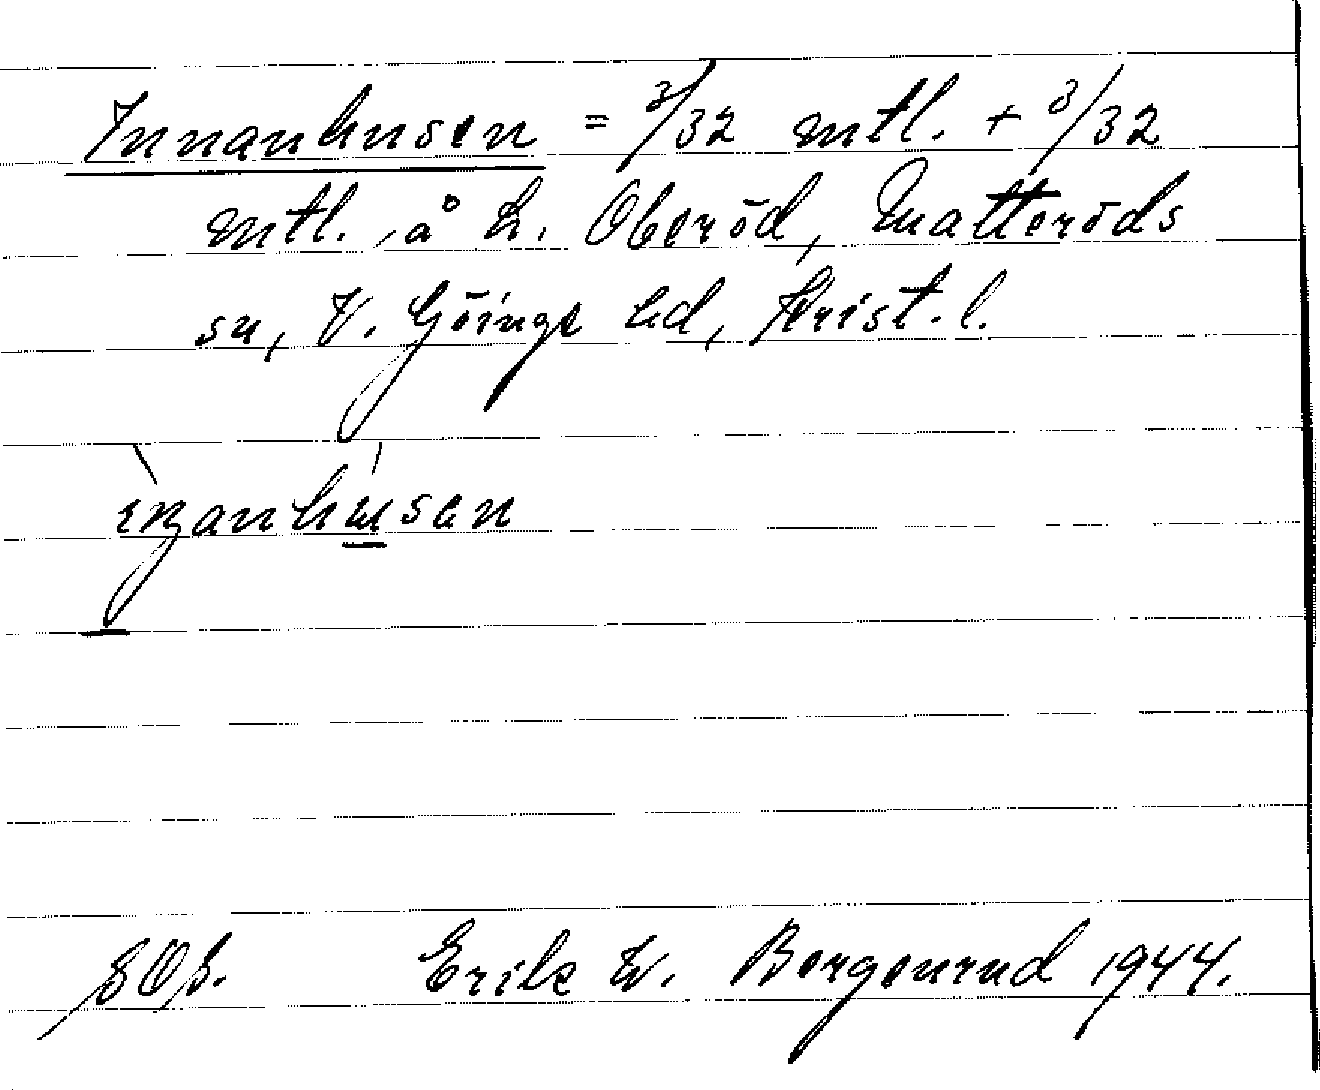 Innanhusen = 3/32 mtl. + 3/32
mtl. å L. Oberöd, Matteröds
sn, V. Göinge hd, Krist. l.
ìnanhúsen
SOf. Erik W. Bergenrud 1944.